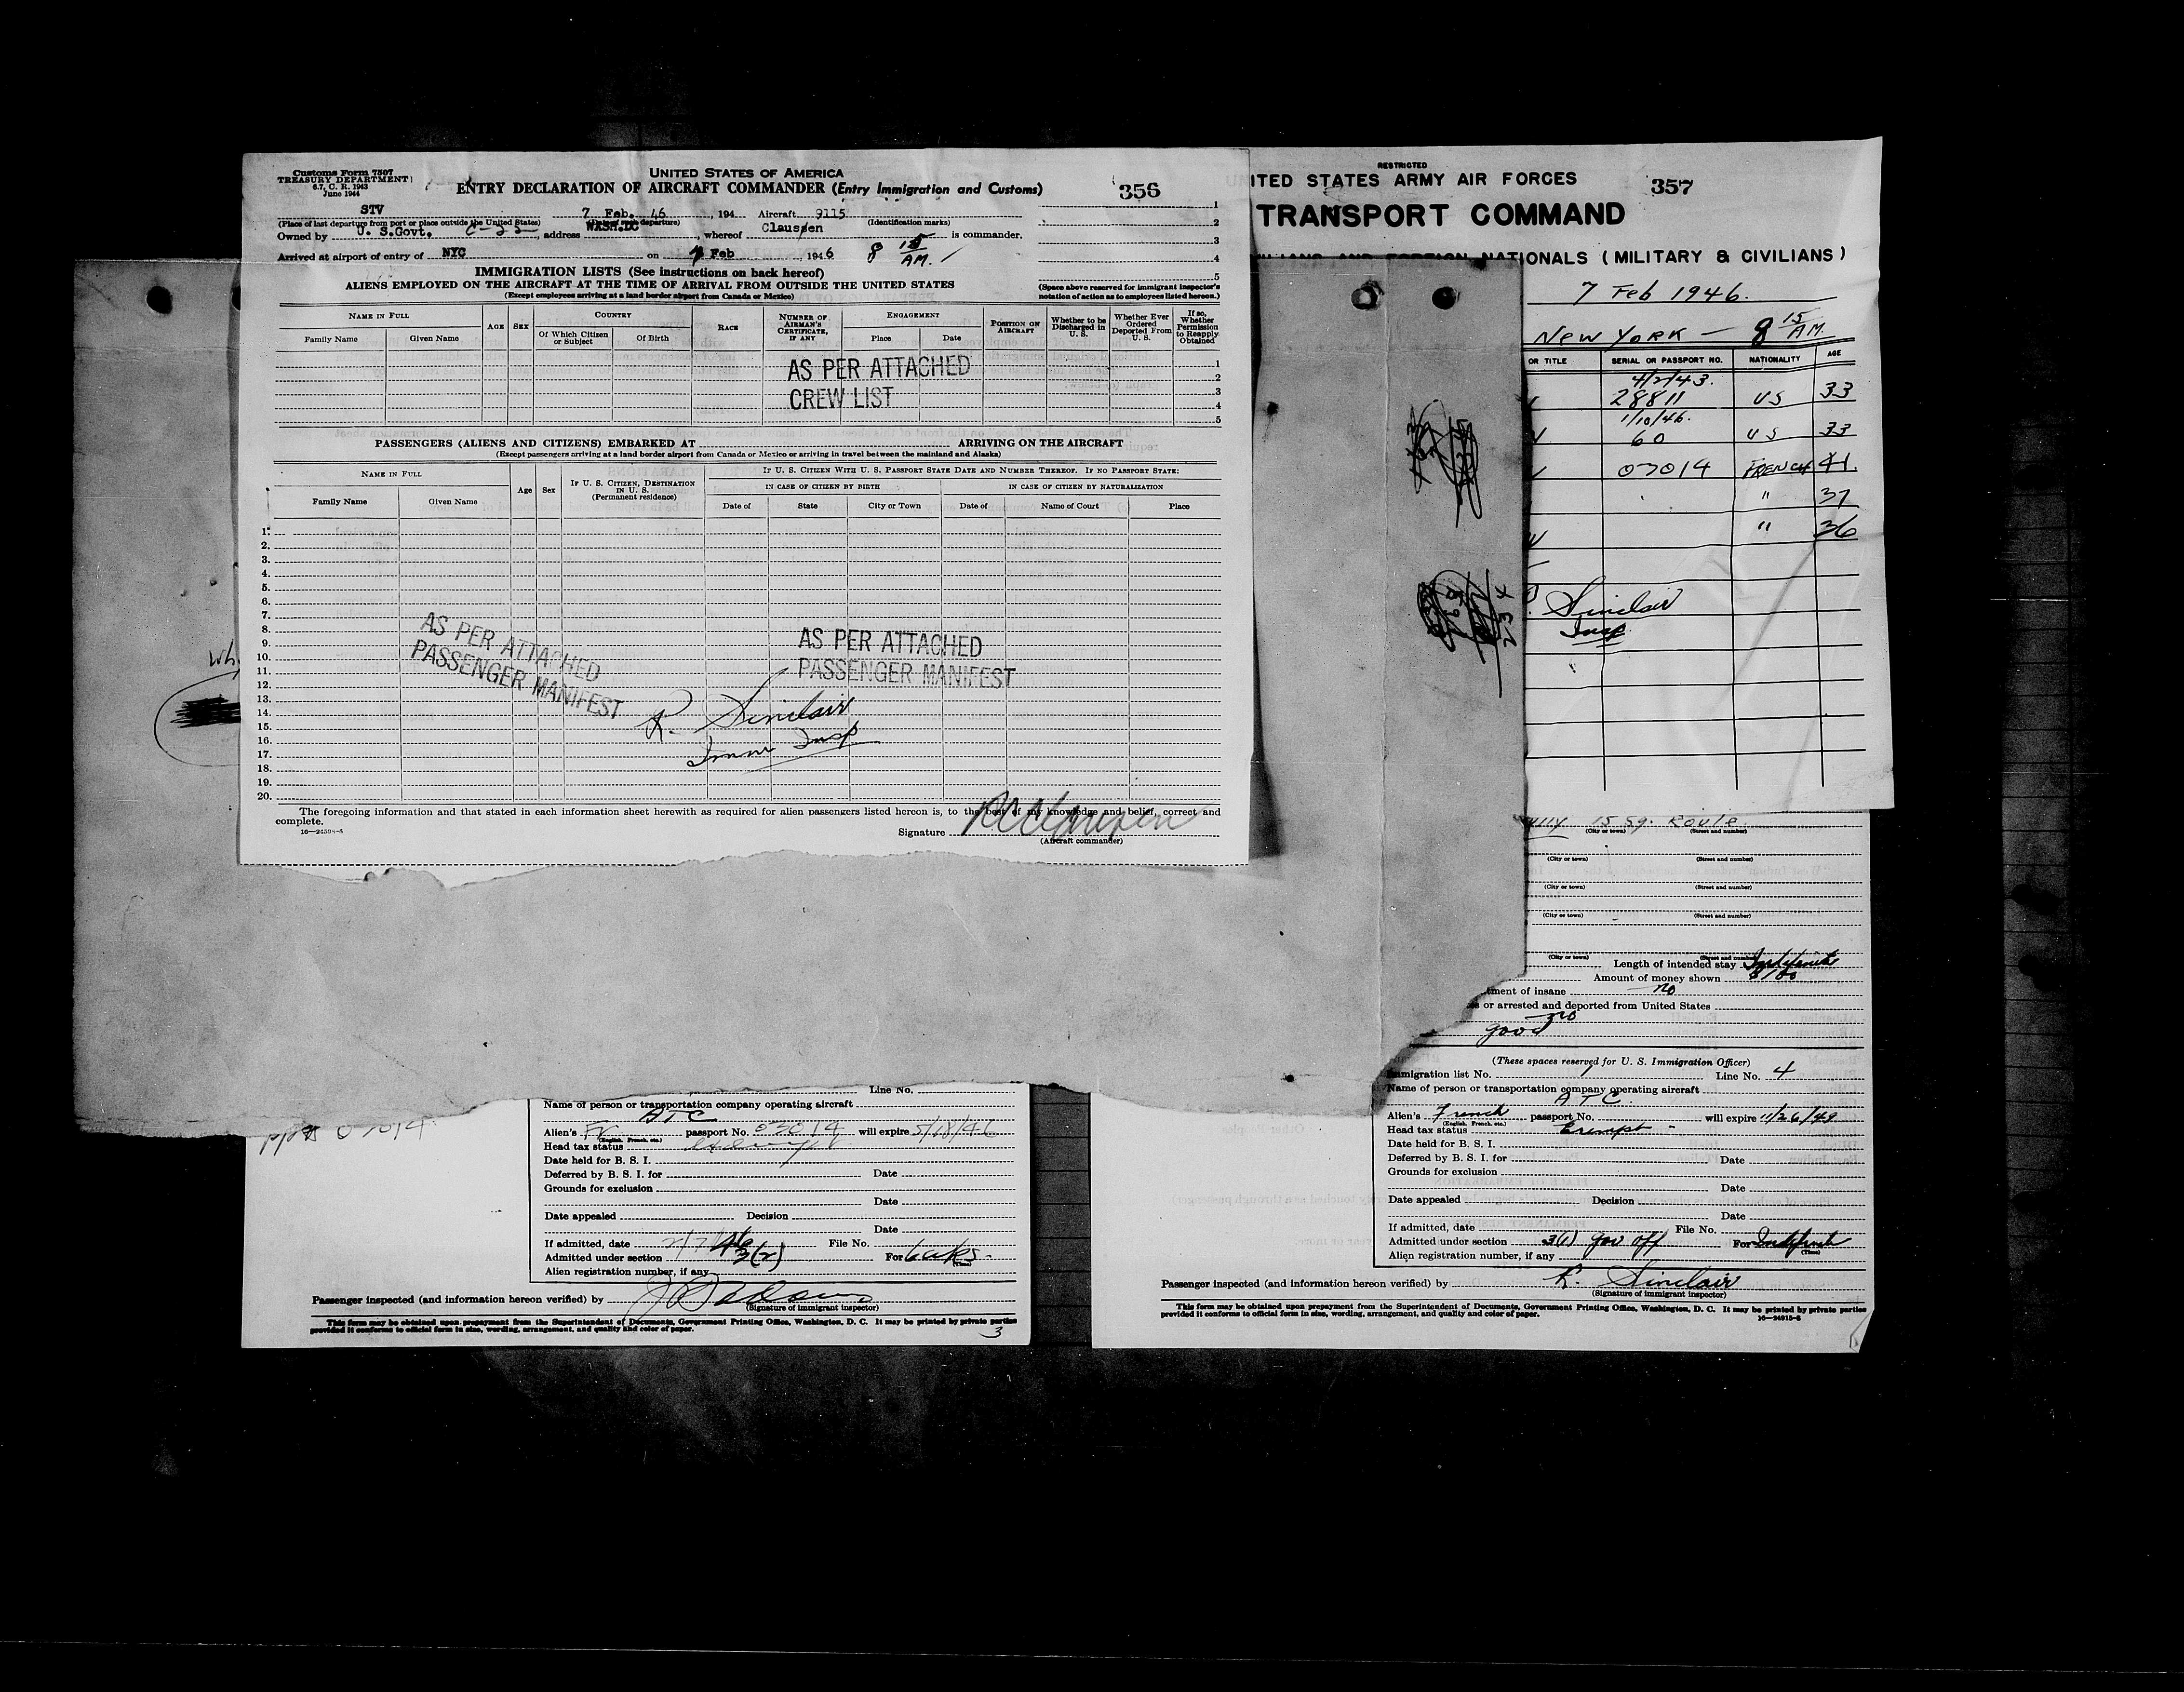 Customs Form 7507
TREASURY DEPARTMENT
6.7, C. R. 1943
June 1944
UNITED STATES OF AMERICA
ENTRY DECLARATION OF AIRCRAFT COMMANDER (Entry Immigration and Customs)
356
STV 7 Feb. 46, 194 Aircraft 9115
(Place of last departure from port or place outside the United States) (Date of such departure) (Identification marks)
Owned by U. S.Govt. address WASH.DC, whereof Claussen is commander.
Arrived at airport of entry of NYC on 7 Feb, 1946 8 15 AM.
1
2
3
4
5
(Space above reserved for immigrant inspector's
notation of action as to employees listed hereon.)
IMMIGRATION LISTS (See instructions on back hereof)
ALIENS EMPLOYED ON THE AIRCRAFT AT THE TIME OF ARRIVAL FROM OUTSIDE THE UNITED STATES
(Except employees arriving at a land border airport from Canada or Mexico)
NAME IN FULL
Family Name Given Name
AGE SEX
COUNTRY
Of Which Citizen or Subject Of Birth
RACE
NUMBER OF AIRMAN'S CERTIFICATE, IF ANY
ENGAGEMENT
Place Date
POSITION ON AIRCRAFT
Whether to be Discharged in U. S.
Whether Ever Ordered Deported From U. S.
If so, Whether Permission to Reapply Obtained
AS PER ATTACHED
CREW LIST
1
2
3
4
5
PASSENGERS (ALIENS AND CITIZENS) EMBARKED AT ARRIVING ON THE AIRCRAFT
(Except passengers arriving at a land border airport from Canada or Mexico or arriving in travel between the mainland and Alaska)
NAME IN FULL
Family Name Given Name
Age Sex
IF U. S. CITIZEN, DESTINATION IN U. S.
(Permanent residence)
IF U. S. CITIZEN WITH U. S. PASSPORT STATE DATE AND NUMBER THEREOF. IF NO PASSPORT STATE:
IN CASE OF CITIZEN BY BIRTH IN CASE OF CITIZEN BY NATURALIZATION
Date of State City or Town Date of Name of Court Place
1.
2.
3.
4.
5.
6.
7.
8.
9.
10.
11.
12.
13.
14.
15.
16.
17.
18.
19.
20.
AS PER ATTACHED
PASSENGER MANIFEST
AS PER ATTACHED
PASSENGER MANIFEST
R. Sinclair
Imm Insp
The foregoing information and that stated in each information sheet herewith as required for alien passengers listed hereon is, to the best of my knowledge and belief, correct and
complete.
16—24598-5
Signature
(Aircraft commander)
RESTRICTED
UNITED STATES ARMY AIR FORCES
357
TRANSPORT COMMAND
NATIONALS (MILITARY & CIVILIANS)
7 Feb 1946.
New York — 8 15 AM.
OR TITLE SERIAL OR PASSPORT NO. NATIONALITY AGE
4/2/43.
28811 US 33
1/10/46.
60 US 33
07014 FRENCH 41.
" 37
" 36
Sinclair
Insp
234
15 Sq. Route
(City or town) (Street and number)
(City or town) (Street and number)
(City or town) (Street and number)
(City or town) (Street and number)
(City or town) (Street and number)
Length of intended stay Indefinite
Amount of money shown $100
tment of insane no
or arrested and deported from United States
no
good
(These spaces reserved for U. S. Immigration Officer)
Immigration list No. 1 Line No. 4
Name of person or transportation company operating aircraft
ATC.
Alien's French passport No. will expire 11/26/49
(English, French, etc.)
Head tax status Exempt -
Date held for B. S. I.
Deferred by B. S. I. for Date
Grounds for exclusion
Date
Date appealed Decision
Date
If admitted, date File No.
Admitted under section 3(1) gov off For Indefinite
(Time)
Alien registration number, if any
Passenger inspected (and information hereon verified) by R. Sinclair
(Signature of immigrant inspector)
This form may be obtained upon prepayment from the Superintendent of Documents, Government Printing Office, Washington, D. C. It may be printed by private parties
provided it conforms to official form in size, wording, arrangement, and quality and color of paper.
16—24915-6
Line No.
Name of person or transportation company operating aircraft
ATC
Alien's Fr passport No. 03014 will expire 5/18/46
(English, French, etc.)
Head tax status
Date held for B. S. I.
Deferred by B. S. I. for Date
Grounds for exclusion
Date
Date appealed Decision
Date
If admitted, date 2/7/46 File No.
Admitted under section 3(2) For 6 wks-
(Time)
Alien registration number, if any
Passenger inspected (and information hereon verified) by
(Signature of immigrant inspector)
This form may be obtained upon prepayment from the Superintendent of Documents, Government Printing Office, Washington, D. C. It may be printed by private parties
provided it conforms to official form in size, wording, arrangement, and quality and color of paper.
3